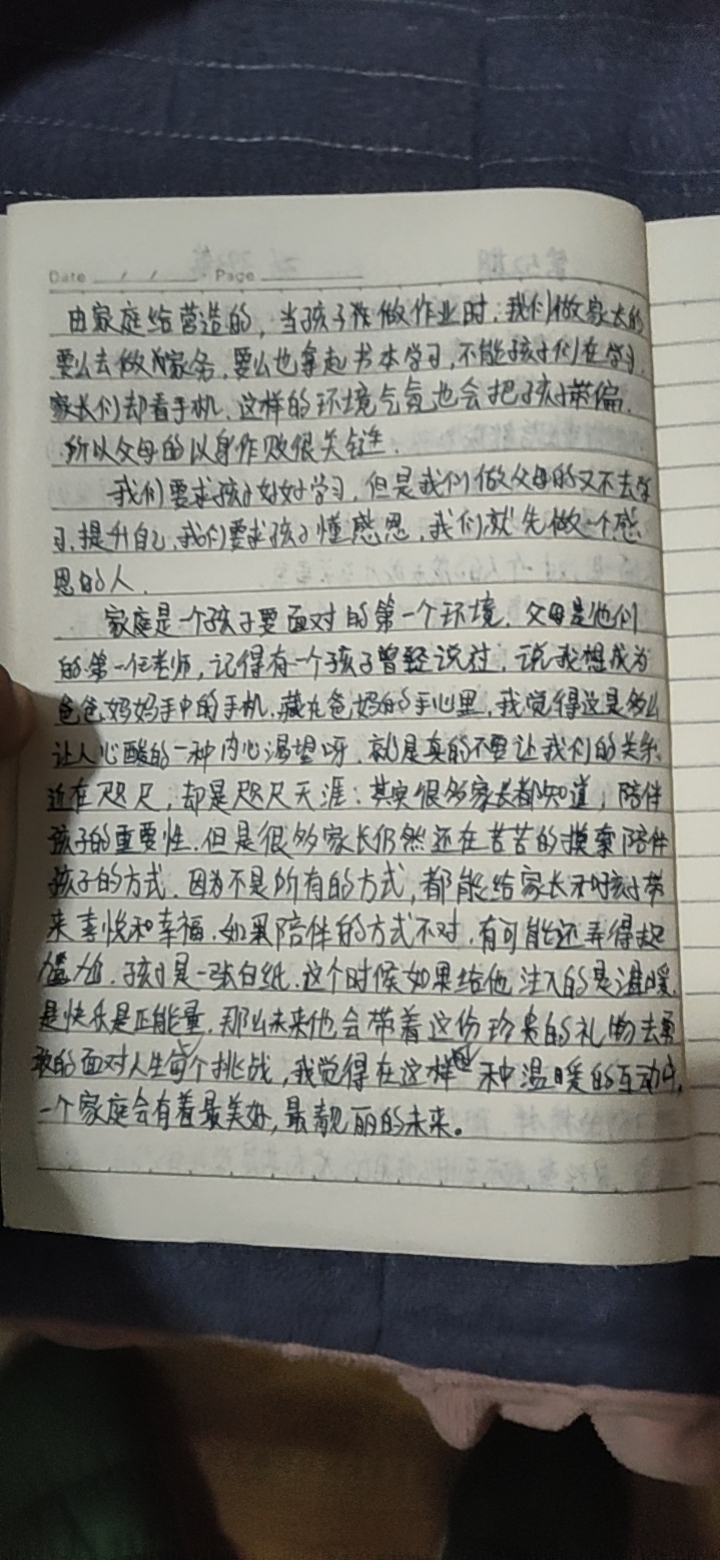 Date / / Page
由家庭给营造的，当孩子在做作业时，我们做家长的
要么去做家务，要么也拿起书本学习，不能孩子们在学习，
家长们却看手机，这样的环境气氛也会把孩子带偏，
所以父母的以身作败很关键．
我们要求孩子好好学习，但是我们做父母的又不去学
习，提升自己，我们要求孩子懂感恩，我们就先做一个感
恩的人．
家庭是一个孩子要面对的第一个环境，父母是他们
的第一任老师，记得有一个孩子曾经说过，说我想成为
爸爸妈妈手中的手机，藏在爸妈的手心里，我觉得这是多么
让人心酸的一种内心渴望呀，就是真的不要让我们的关系，
近在咫尺，却是咫尺天涯：其实很多家长都知道，陪伴
孩子的重要性，但是很多家长仍然还在苦苦的摸索陪伴
孩子的方式，因为不是所有的方式，都能给家长和孩子带
来喜悦和幸福，如果陪伴的方式不对，有可能还弄得起
尴尬．孩子是一张白纸，这个时候如果给他注入的是温暖，
是快乐是正能量，那么未来他会带着这份珍贵的礼物去勇
敢的面对人生每个挑战，我觉得在这样的一种温暖的互动中，
一个家庭会有着最美好，最靓丽的未来。